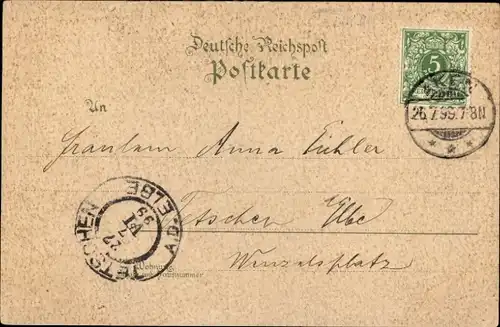 Deutsche Reichspost
Postkarte
5
26.7.99.7-8N
An
Fräulein Anna Eichler
Tetschen Elbe
Wenzelsplatz
TETSCHEN A.D. ELBE
27
7
99
Wohnung